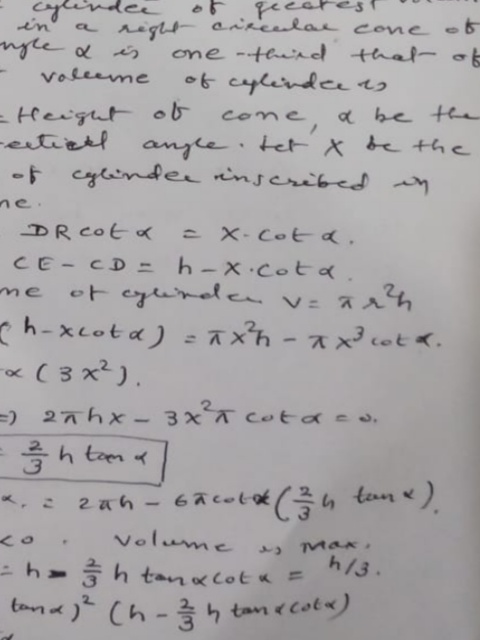 cylinder of greatest volume
in a right circular cone of
angle α is one-third that of
volume of cylinder is
Height of cone, α be the
vertical angle. Let X be the
of cylinder inscribed in
ne.
DR cot α = X. cot α.
CE - CD = h - X. cot α
me of cylinder V = π r²h
(h - x cot α) = π x²h - π x³ cot α.
α (3x²).
=) 2πhx - 3x²π cot α = 0.
= 2/3 h tan α
α. = 2πh - 6π cot α (2/3 h tan α).
<0. Volume is max.
= h - 2/3 h tan α cot α = h/3.
tan α)² (h - 2/3 h tan α cot α)